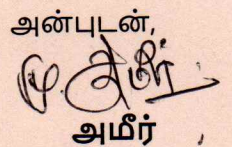 அன்புடன்,
மு. அமீர்
அமீர்